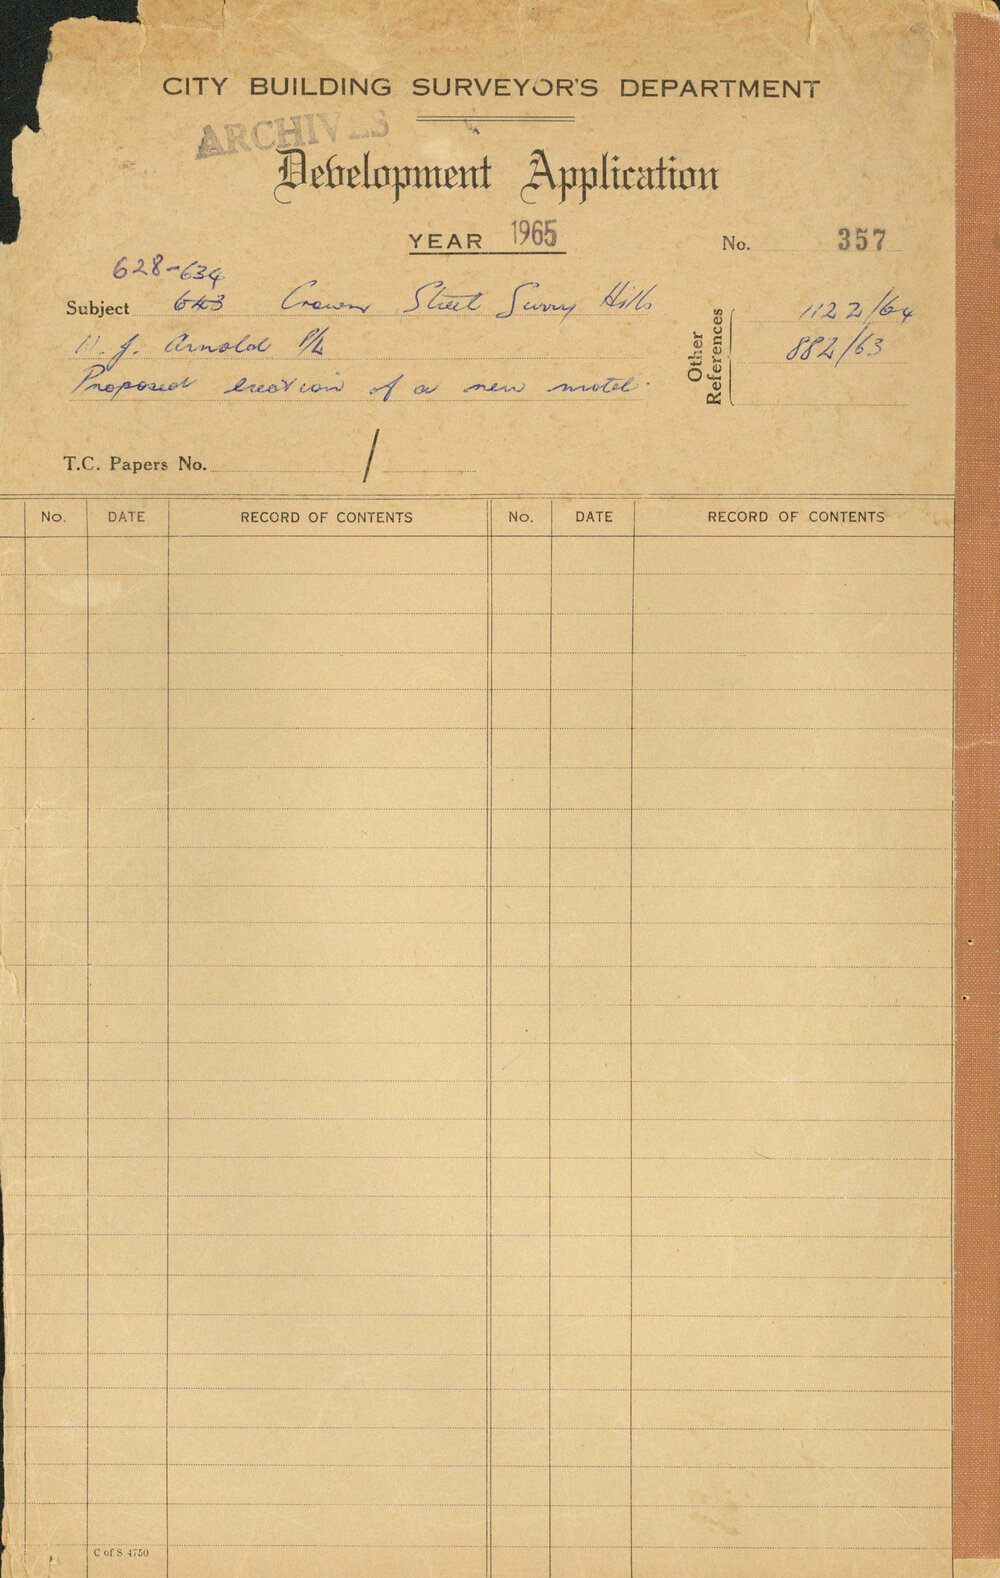 CITY BUILDING SURVEYOR'S DEPARTMENT
ARCHIVES
Development Application
YEAR 1965
No. 357
628-634
Subject 643 Crown Street Surry Hills
J. Arnold P/L
Proposed erection of a new motel.
Other References
1122/64
882/63
T.C. Papers No. /
No. DATE RECORD OF CONTENTS No. DATE RECORD OF CONTENTS
C of S 4750